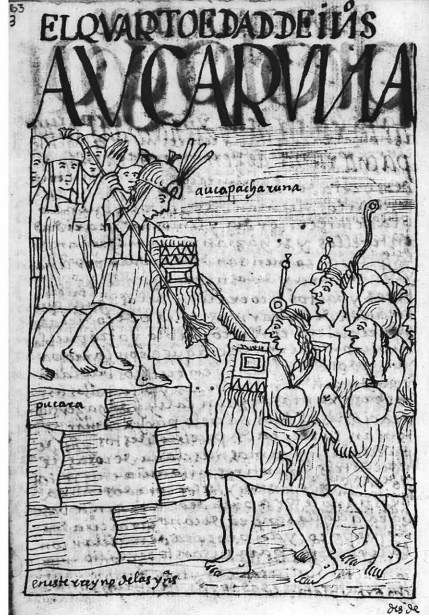 63
3
EL QVARTO EDAD DE INS
AVCARVNA
aucapacharuna
pucara
en este rreyno de las yns
des de